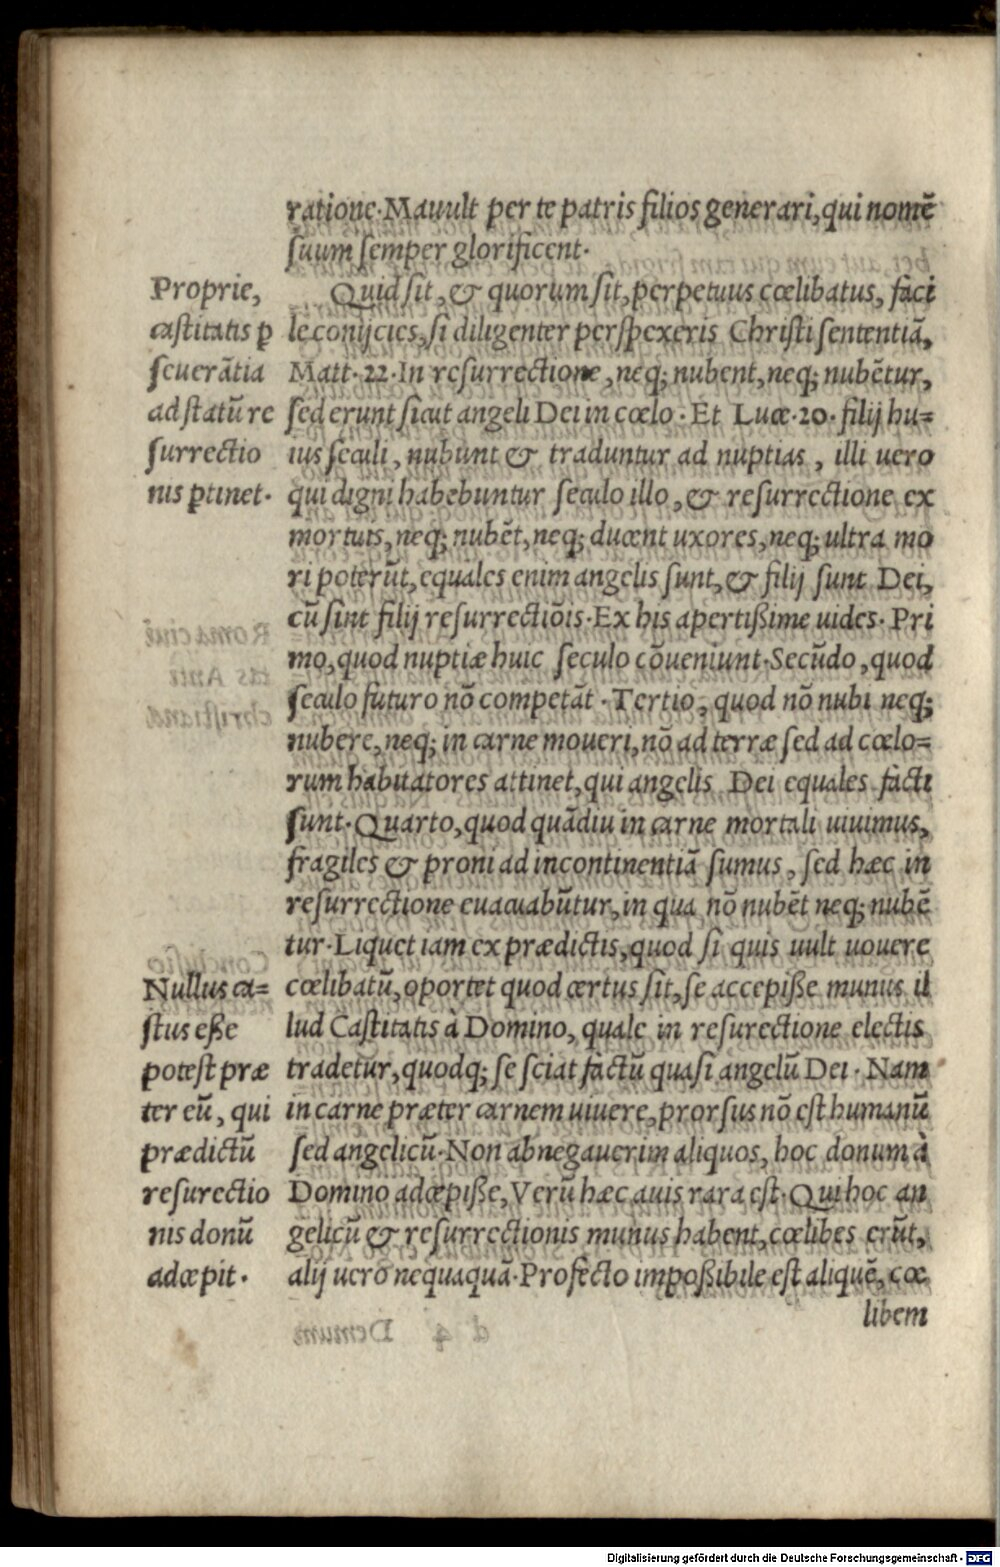 ratione. Mauult per te patris filios generari, qui nomē
suum semper glorificent.
Quid sit, & quorum sit, perpetuus cœlibatus, faci
le conijcies, si diligenter perspexeris Christi sententiā,
Matt. 22. In resurrectione, neq; nubent, neq; nubētur,
sed erunt sicut angeli Dei in cœlo. Et Lucæ. 20. filij hu=
ius seculi, nubunt & traduntur ad nuptias, illi uero
qui digni habebuntur seculo illo, & resurrectione ex
mortuis, neq; nubēt, neq; ducent uxores, neq; ultra mo
ri poterūt, equales enim angelis sunt, & filij sunt Dei,
cū sint filij resurrectiōis. Ex his apertißime uides. Pri
mo, quod nuptiæ huic seculo cōueniunt. Secūdo, quod
seculo futuro nō competāt. Tertio, quod nō nubi neq;
nubere, neq; in carne moueri, nō ad terræ sed ad cœlo=
rum habitatores attinet, qui angelis Dei equales facti
sunt. Quarto, quod quādiu in carne mortali uiuimus,
fragiles & proni ad incontinentiā sumus, sed hæc in
resurrectione euacuabūtur, in qua nō nubēt neq; nubē
tur. Liquet iam ex prædictis, quod si quis uult uouere
cœlibatū, oportet quod certus sit, se accepiße munus il
lud Castitatis à Domino, quale in resurectione electis
tradetur, quodq; se sciat factū quasi angelū Dei. Nam
in carne præter carnem uiuere, prorsus nō est humanū
sed angelicū. Non abnegauerim aliquos, hoc donum à
Domino adcepiße, Verū hæc auis rara est. Qui hoc an
gelicū & resurrectionis munus habent, cœlibes erūt,
alij uero nequaquā. Profecto impoßibile est aliquē, cœ
libem
Proprie,
castitatis p
seuerātia
ad statū re
surrectio
nis ptinet.
Nullus ca=
stus eße
potest præ
ter eū, qui
prædictū
resurectio
nis donū
adcepit.
Digitalisierung gefördert durch die Deutsche Forschungsgemeinschaft - DFG